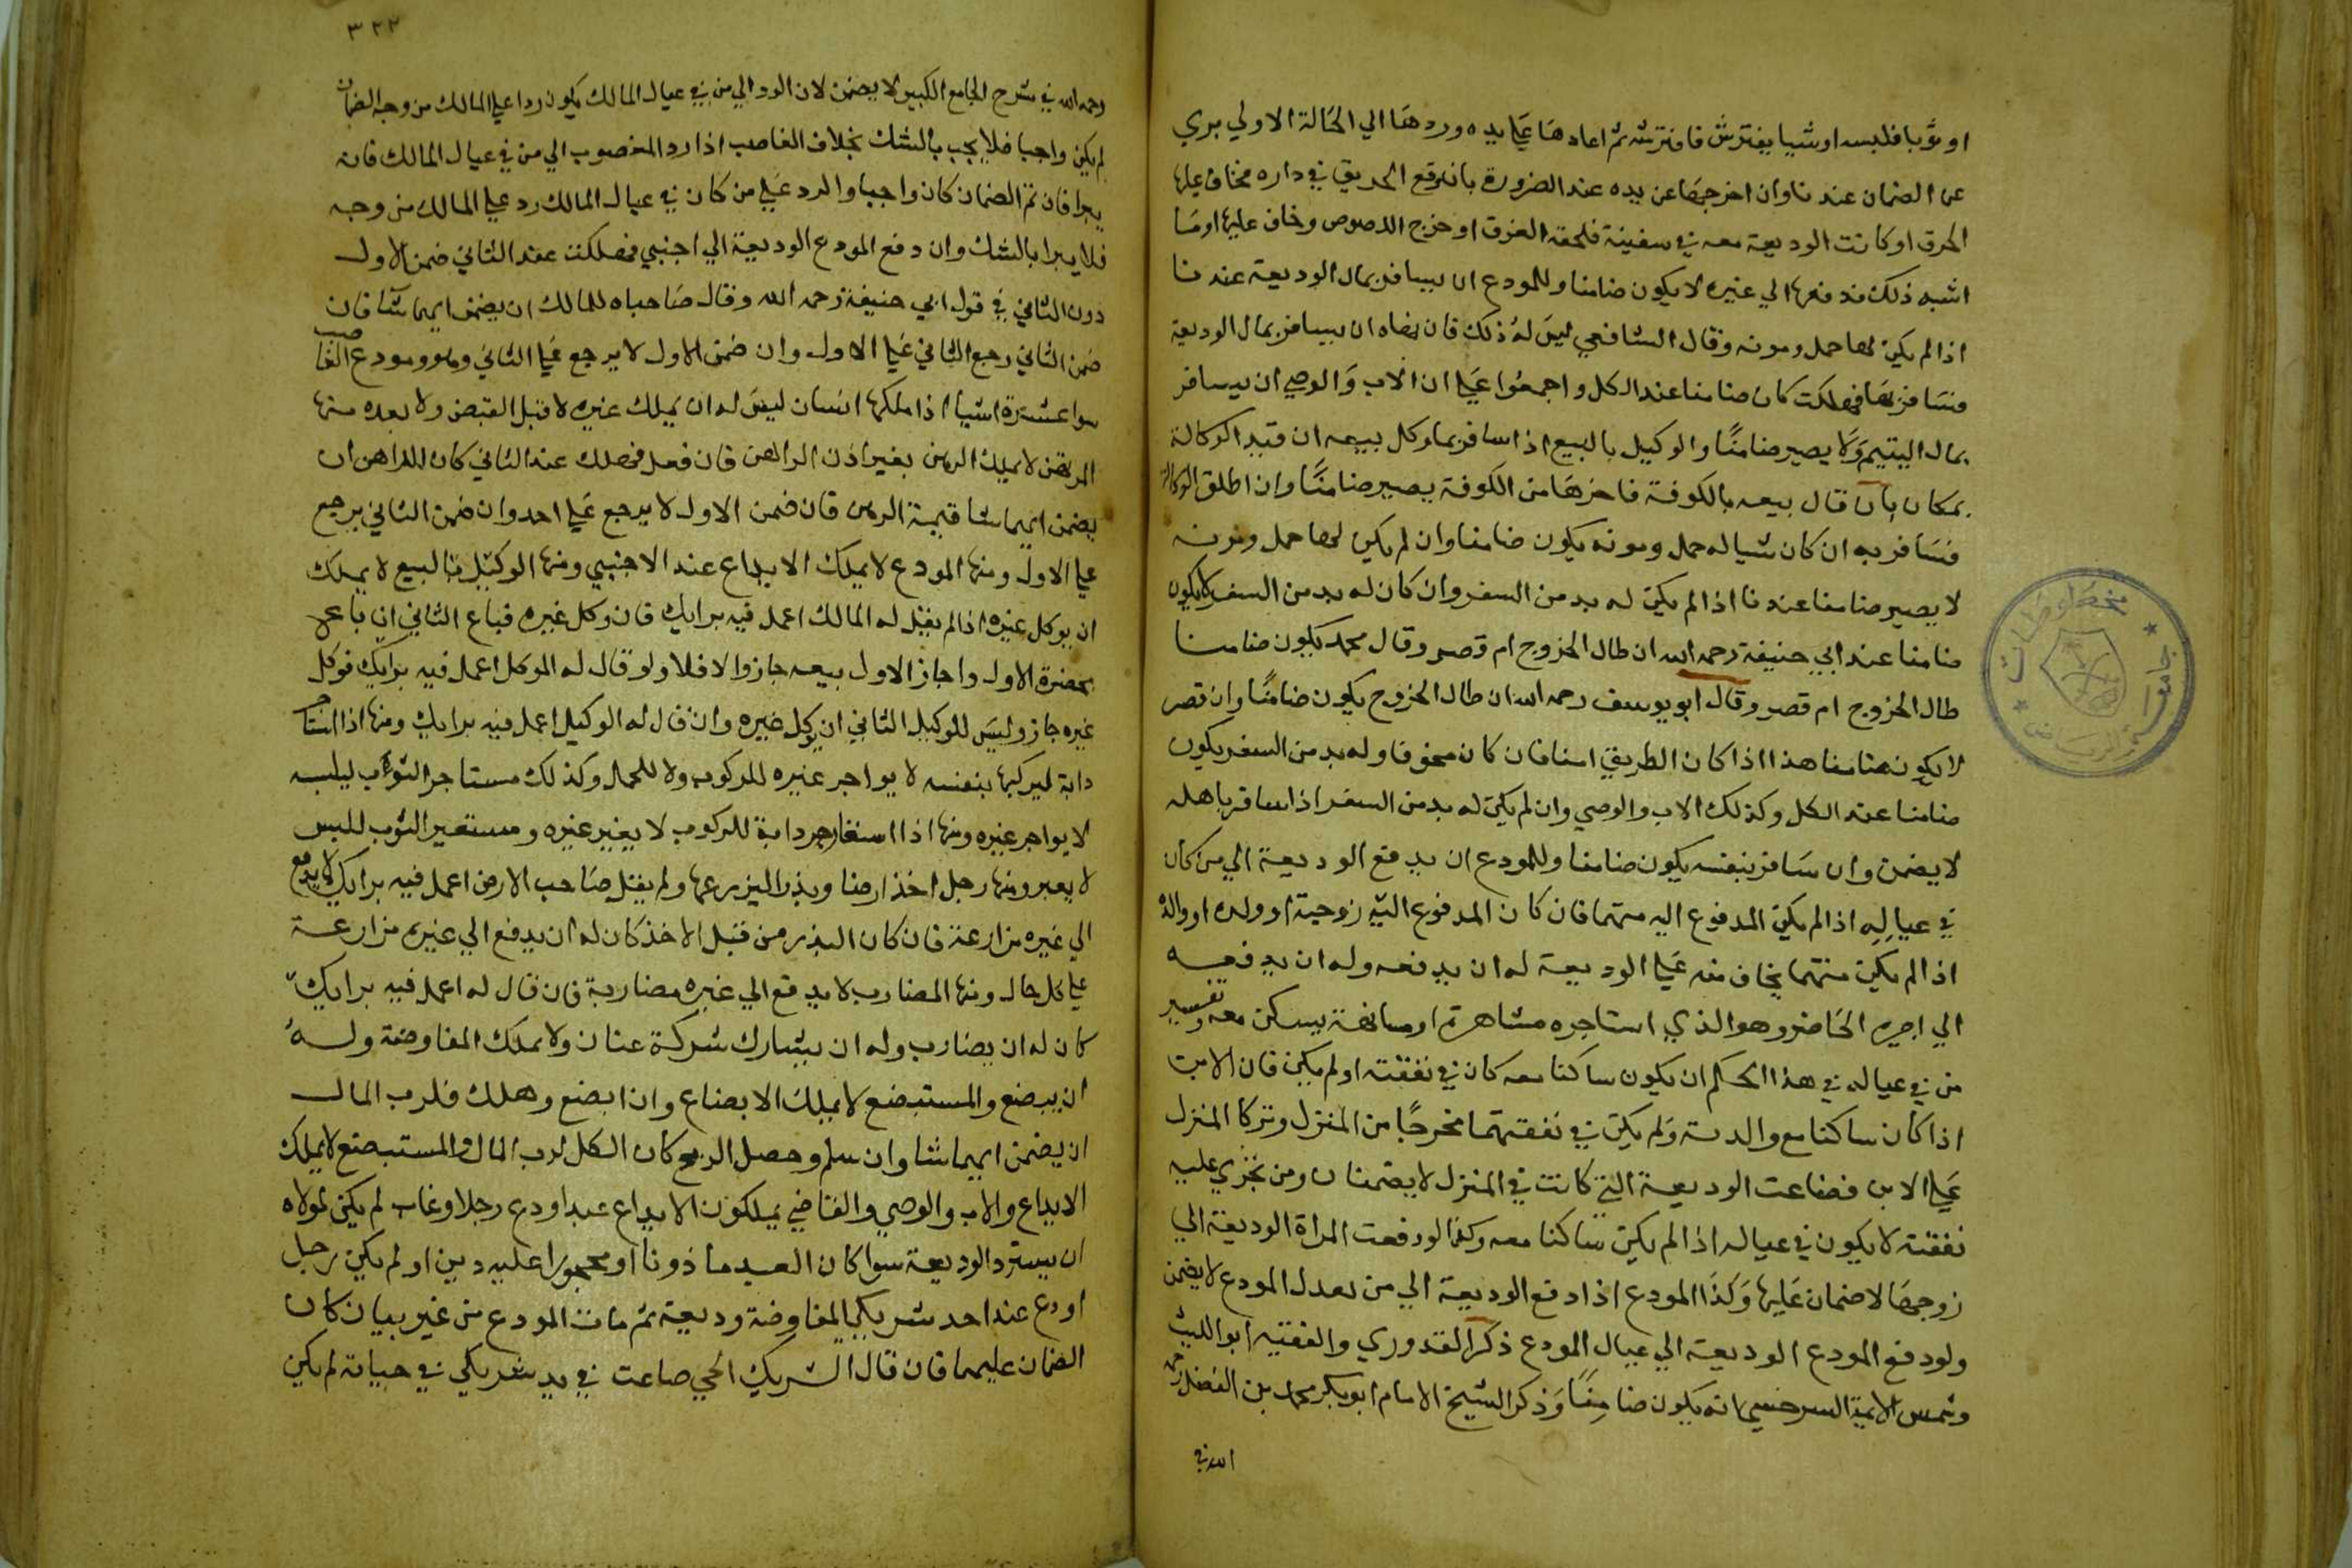 او ثوبا فلبسه او شيا يفترش فافترشه ثم اعادها علي يده وردها الي الحالة الاولي بري
عن الضمان عندنا وان اخرجها عن يده عند الضرورة بان وقع الحريق في داره فخاف عليها
الحرق او كانت الوديعة معه في سفينة فلحقه الغرق او خرج اللصوص وخاف عليها او ما
اشبه ذلك فدفعها الي غيره لا يكون ضامنا وللمودع ان يسافر بمال الوديعة عندنا
اذا لم يكن لها حمل ومونه وقال الشافعي ليس له ذلك فان نهاه ان يسافر بمال الوديعة
فسافر بها فهلكت كان ضامنا عند الكل واجمعوا علي ان الاب والوصي ان يسافر
بمال اليتيم ولا يصير ضامنًا والوكيل بالبيع اذا سافر بما وكل ببيعه ان قيد الوكالة
بمكان بان قال بيعه بالكوفة فاخرجها من الكوفة يصير ضامنًا وان اطلق الوكالة
فسافر به ان كان شيا له حمل ومونه يكون ضامنا وان لم يكن لها حمل ومونه
لا يصير ضامنا عندنا اذا لم يكن له بد من السفر وان كان له بد من السفر لا يكون
ضامنا عند ابي حنيفة رحمه الله ان طال الخروج ام قصر وقال محمد يكون ضامنا
طال الخروج ام قصر وقال ابو يوسف رحمه الله ان طال الخروج يكون ضامنًا وان قصر
لا يكون ضامنا هذا اذا كان الطريق امنا فان كان مخوفا وله بد من السفر يكون
ضامنا عند الكل وكذلك الاب والوصي وان لم يكن له بد من السفر اذا سافر باهله
لا يضمن وان سافر بنفسه يكون ضامنا وللمودع ان يدفع الوديعة الي من كان
في عياله اذا لم يكن المدفوع اليه متهما فان كان المدفوع اليه زوجته او ولده او والده
اذا لم يكن متهما يخاف منه علي الوديعة له ان يدفعه وله ان يدفعه
الي اجيره الخاص وهو الذي استاجره مشاهرة او مسانهة يسكن معه وتفسير
من في عياله في هذا الحكم ان يكون ساكنا معه كان في نفقته او لم يكن فان الابن
اذا كان ساكنا مع والديه ولم يكن في نفقتهما فخرجا من المنزل وتركا المنزل
علي الابن فضاعت الوديعة التي كانت في المنزل لا يضمنان ومن تجري عليه
نفقته لا يكون في عياله اذا لم يكن ساكنا معه وكذا لو دفعت المراة الوديعة الي
زوجها لا ضمان عليها وكذا المودع اذا دفع الوديعة الي من يعدل المودع لا يضمن
ولو دفع المودع الوديعة الي عيال المودع ذكر القدوري والفقيه ابو الليث
وشمس الايمة السرخسي انه يكون ضامنًا وذكر الشيخ الامام ابو بكر محمد بن الفضل رحمه
الله في
٣٢٢
رحمه الله في شرح الجامع الكبير لا يضمن لان الرد الي من في عيال المالك يكون ردا علي المالك من وجه الضمان
لم يكن واجبا فلا يجب بالشك بخلاف الغاصب اذا رد المغصوب الي من في عيال المالك فانه
يبرا فان ثم الضمان كان واجبا والرد علي من كان في عيال المالك رد علي المالك من وجه
فلا يبرا بالشك وان دفع المودع الوديعة الي اجنبي فهلكت عند الثاني ضمن الاول
دون الثاني في قول ابي حنيفة رحمه الله وقال صاحباه للمالك ان يضمن ايهما شا فان
ضمن الثاني رجع الثاني علي الاول وان ضمن الاول لا يرجع علي الثاني وهو ومودع الغاصب
سوا عشرة اشيا اذا ملكها انسان ليس له ان يملك غيره لا قبل القبض ولا بعده منها
المرتهن لا يملك الرهن بغير اذن الراهن فان فعل فهلك عند الثاني كان للراهن ان
يضمن ايهما شا قيمة الرهن فان ضمن الاول لا يرجع علي احد وان ضمن الثاني يرجع
علي الاول ومنها المودع لا يملك الايداع عند الاجنبي ومنها الوكيل بالبيع لا يملك
ان يوكل غيره اذا لم يقل له المالك اعمل فيه برايك فان وكل غيره فباع الثاني ان باعه
بحضرة الاول واجاز الاول بيعه جاز والا فلا ولو قال له الموكل اعمل فيه برايك فوكل
غيره جاز وليس للوكيل الثاني ان يوكل غيره وان قال له الوكيل اعمل فيه برايك ومنها اذا استاجر
دابة ليركبها بنفسه لا يواجر غيره للركوب ولا للحمل وكذلك مستاجر الثوب ليلبسه
لا يواجر غيره ومنها اذا استعار دابة للركوب لا يعير غيره ومستعير الثوب للبس
لا يعير ومنها رجل اخذ ارضا وبذرا ليزرعها ولم يقل صاحب الارض اعمل فيه برايك لا يدفع
الي غيره مزارعة فان كان البذر من قبل الاخذ كان له ان يدفع الي غيره مزارعة
علي كل حال ومنها المضارب لا يدفع الي غيره مضاربة فان قال له اعمل فيه برايك
كان له ان يضارب وله ان يشارك شركة عنان ولا يملك المفاوضة وله
ان يبضع والمستبضع لا يملك الابضاع وان ابضع وهلك فلرب المال
ان يضمن ايهما شا وان سلم وحصل الربح كان الكل لرب المال والمستبضع لا يملك
الايداع والاب والوصي والقاضي يملكون الايداع عبد اودع رجلا وغاب لم يكن لمولاه
ان يسترد الوديعة سوا كان العبد ماذونا او محجورا عليه دين او لم يكن رجل
اودع عند احد شريكي المفاوضة وديعة ثم مات المودع من غير بيان كان
الضمان عليهما فان قال الشريك الحي ضاعت في يد شريكي في حياته لم يكن